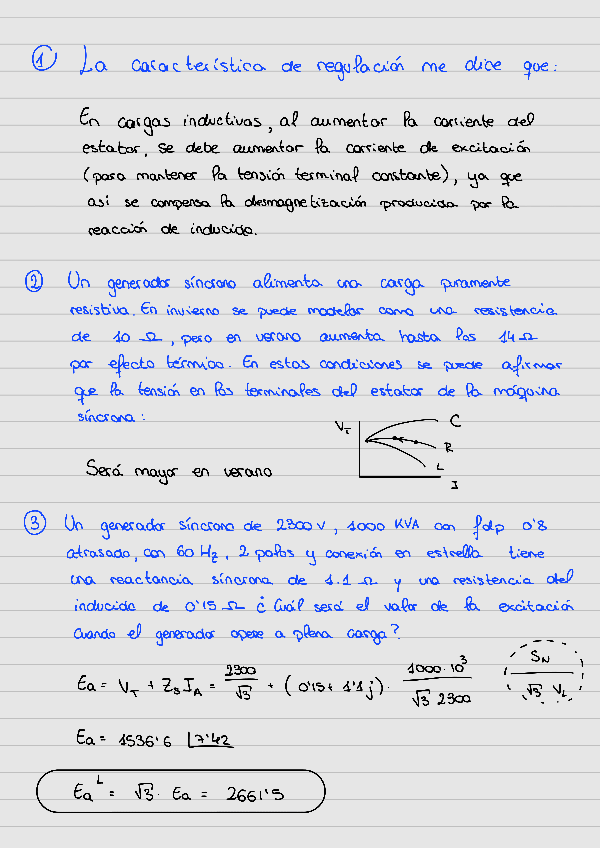 ① La característica de regulación me dice que:
En cargas inductivas, al aumentar la corriente del
estator, se debe aumentar la corriente de excitación
(para mantener la tensión terminal constante), ya que
así se compensa la desmagnetización producida por la
reacción de inducido.
② Un generador síncrono alimenta una carga puramente
resistiva. En invierno se puede modelar como una resistencia
de 10 Ω, pero en verano aumenta hasta los 14 Ω
por efecto térmico. En estas condiciones se puede afirmar
que la tensión en los terminales del estator de la máquina
síncrona:
V_T C
R
L
I
Será mayor en verano
③ Un generador síncrono de 2300 V, 1000 KVA con fdp 0'8
atrasado, con 60 Hz, 2 polos y conexión en estrella tiene
una reactancia síncrona de 1.1 Ω y una resistencia del
inducido de 0'15 Ω ¿Cuál será el valor de la excitación
cuando el generador opere a plena carga?
Ea = V_T + Z_S I_A = 2300/√3 + (0'15 + 1'1j) · 1000·10³/√3 2300
S_N/√3 V_L
Ea = 1536'6 ∠7'42
Ea^L = √3 · Ea = 2661'5